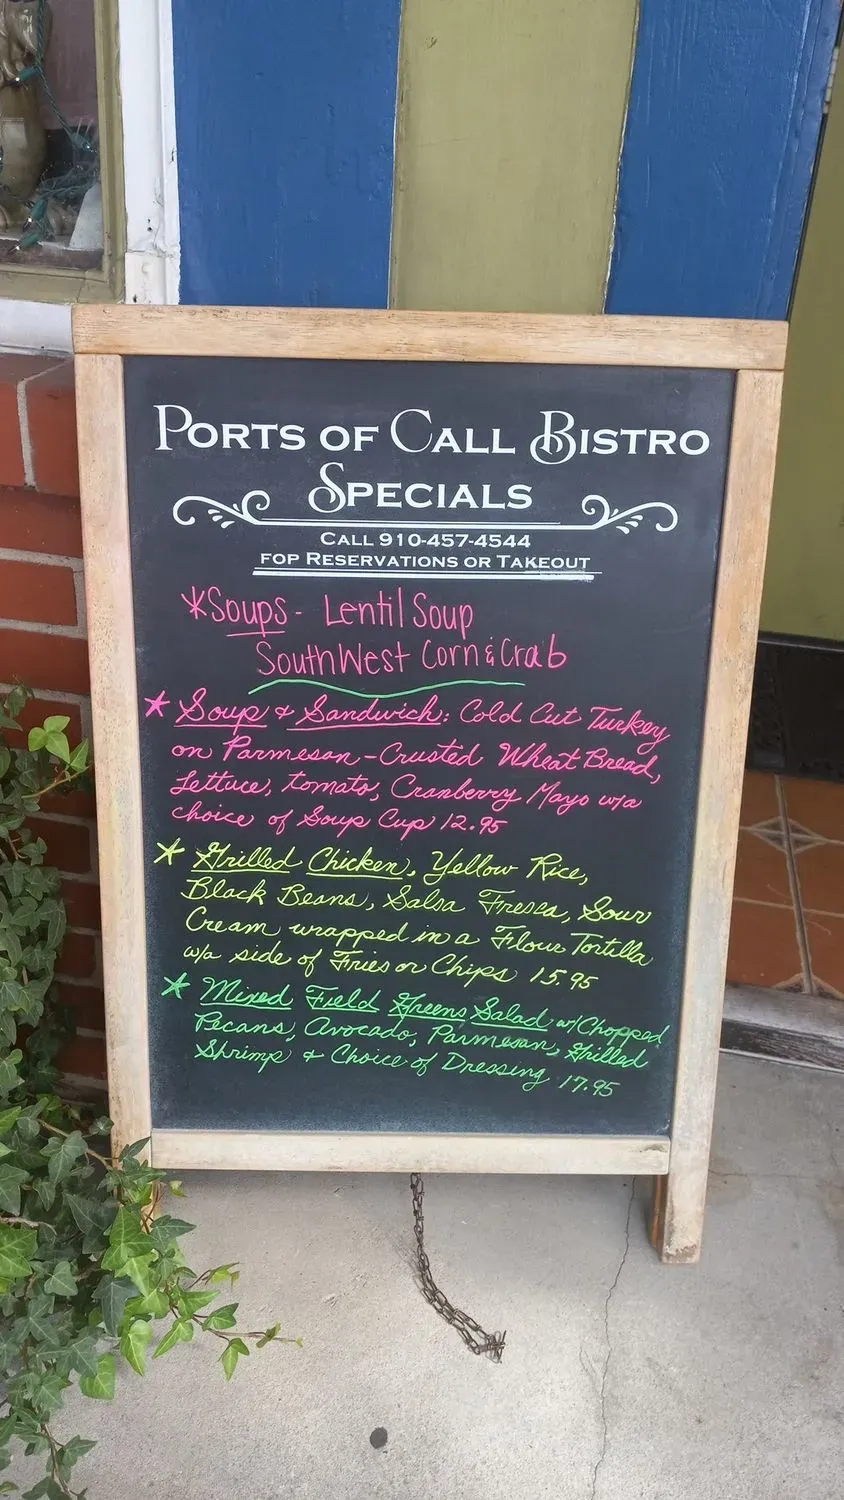 PORTS OF CALL BISTRO
SPECIALS
CALL 910-457-4544
FOP RESERVATIONS OR TAKEOUT
*Soups - Lentil Soup
SouthWest Corn & Crab
* Soup & Sandwich: Cold Cut Turkey
on Parmesan-Crusted Wheat Bread,
Lettuce, tomato, Cranberry Mayo w/a
choice of Soup Cup 12.95
* Grilled Chicken, Yellow Rice,
Black Beans, Salsa Fresca, Sour
Cream wrapped in a Flour Tortilla
w/a side of Fries or Chips 15.95
* Mixed Field Greens Salad w/ Chopped
Pecans, Avocado, Parmesan, Grilled
Shrimp & Choice of Dressing 17.95